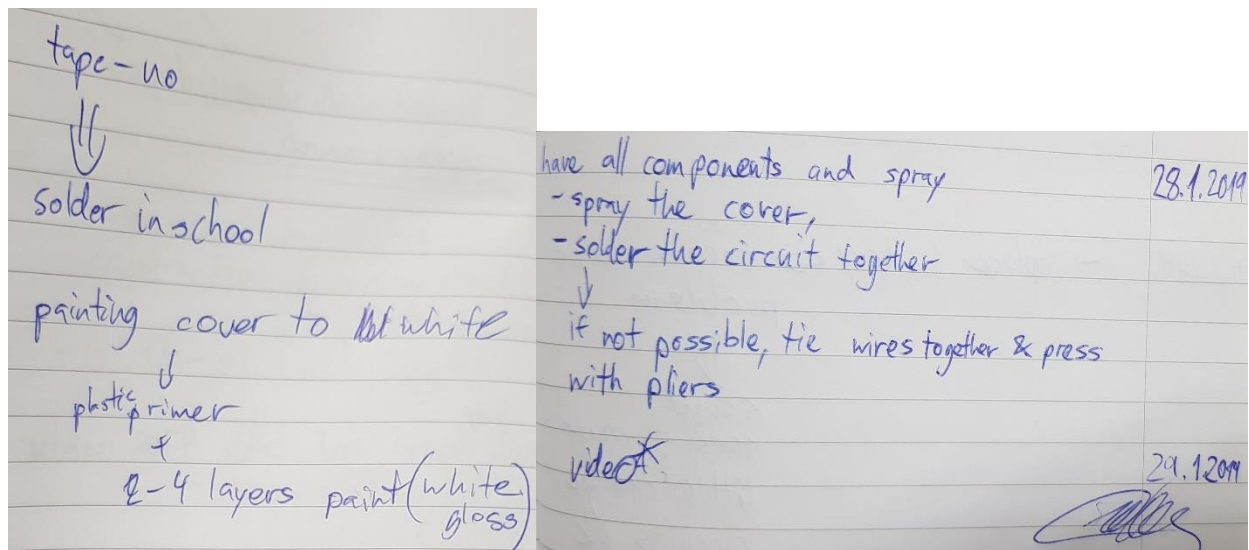 tape - no
solder in school
painting cover to white
↓
plastic primer
+
2-4 layers paint (white gloss)
have all components and spray 28.1.2019
- spray the cover,
- solder the circuit together
↓
if not possible, tie wires together & press
with pliers
video 29.1.2019